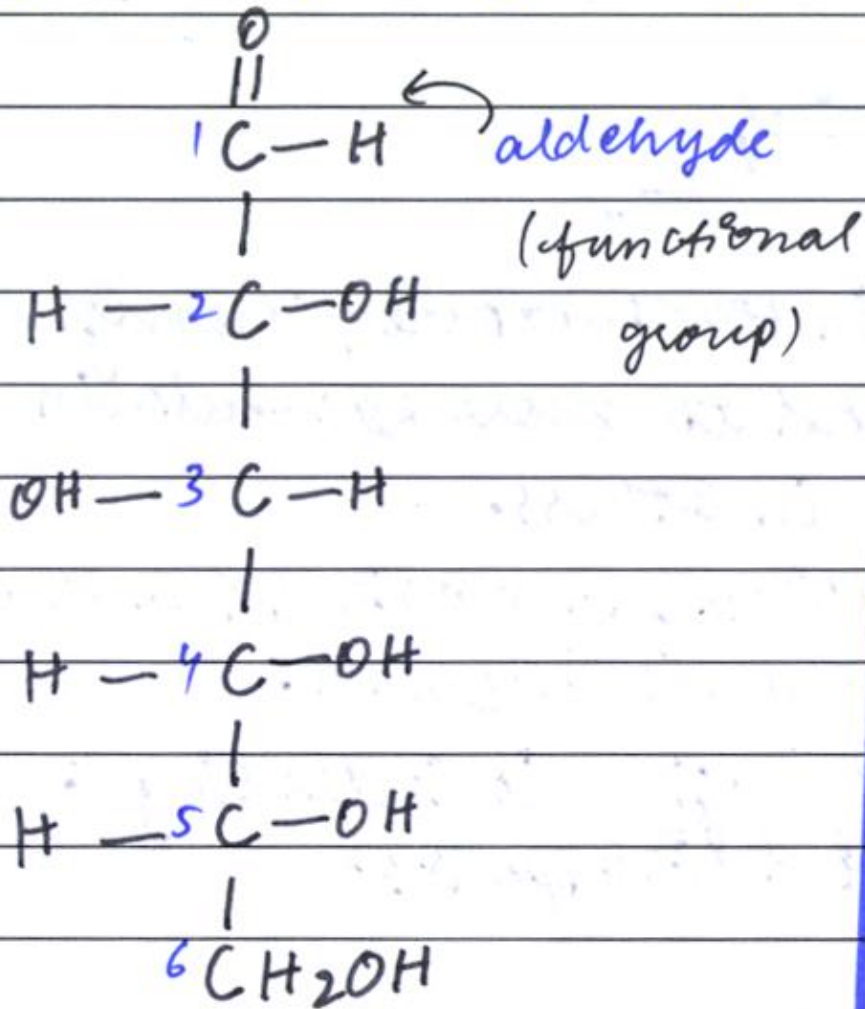 O
||
1 C — H aldehyde
|
(functional
H — 2 C — OH
group)
|
OH — 3 C — H
|
H — 4 C — OH
|
H — 5 C — OH
|
6 CH2OH